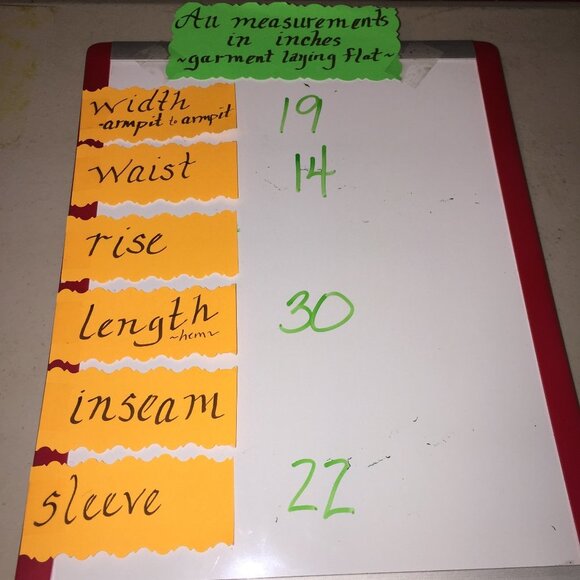 All measurements
in inches
~garment laying flat~
width 19
-armpit to armpit
waist 14
rise
length 30
~hem~
inseam
sleeve 22